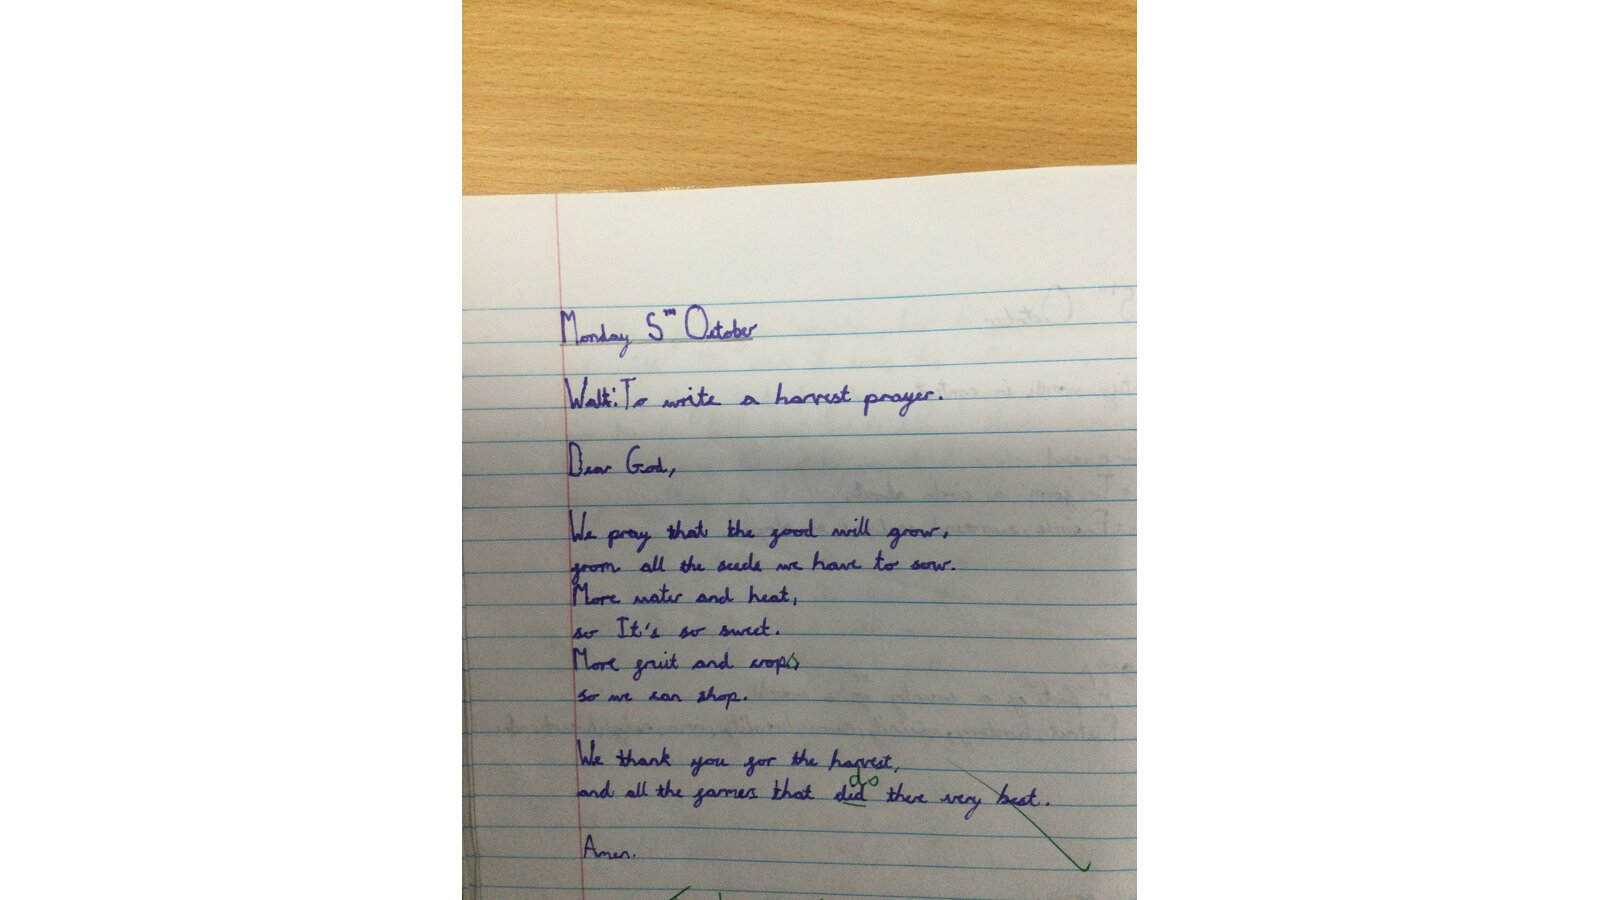 Monday 5th October
Walt: To write a harvest prayer.
Dear God,
We pray that the food will grow,
from all the seeds we have to sow.
More water and heat,
so It's so sweet.
More fruit and crops,
so we can shop.
We thank you for the harvest,
do
and all the farmers that did there very best.
Amen.